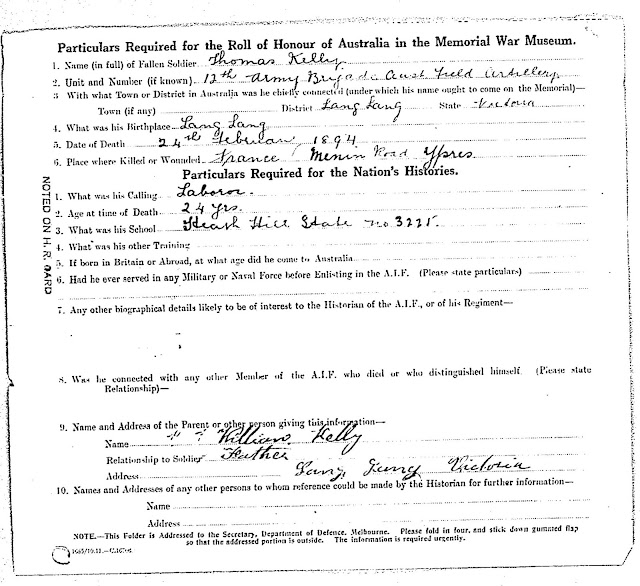 Particulars Required for the Roll of Honour of Australia in the Memorial War Museum.
1. Name (in full) of Fallen Soldier Thomas Kelly
2. Unit and Number (if known) 12th Army Brigade Aust Field Artillery
3 With what Town or District in Australia was he chiefly connected (under which his name ought to come on the Memorial)—
Town (if any) District Lang Lang State Victoria
4. What was his Birthplace Lang Lang
5. Date of Death 24th Februar, 1894
6. Place where Killed or Wounded France Menin Road Ypres
Particulars Required for the Nation's Histories.
1. What was his Calling Laboror.
2. Age at time of Death 24 yrs.
3. What was his School Heath Hill State no 3225.
4. What was his other Training
5. If born in Britain or Abroad, at what age did he come to Australia
6. Had he ever served in any Military or Naval Force before Enlisting in the A.I.F. (Please state particulars)
7. Any other biographical details likely to be of interest to the Historian of the A.I.F., or of his Regiment—
8. Was he connected with any other Member of the A.I.F. who died or who distinguished himself. (Please state
Relationship)—
9. Name and Address of the Parent or other person giving this information—
Name William Kelly
Relationship to Soldier Father
Address Lang Lang Victoria
10. Names and Addresses of any other persons to whom reference could be made by the Historian for further information—
Name
Address
NOTE.—This Folder is Addressed to the Secretary, Department of Defence, Melbourne. Please fold in four, and stick down gummed flap
so that the addressed portion is outside. The information is required urgently.
NOTED ON H.R. CARD